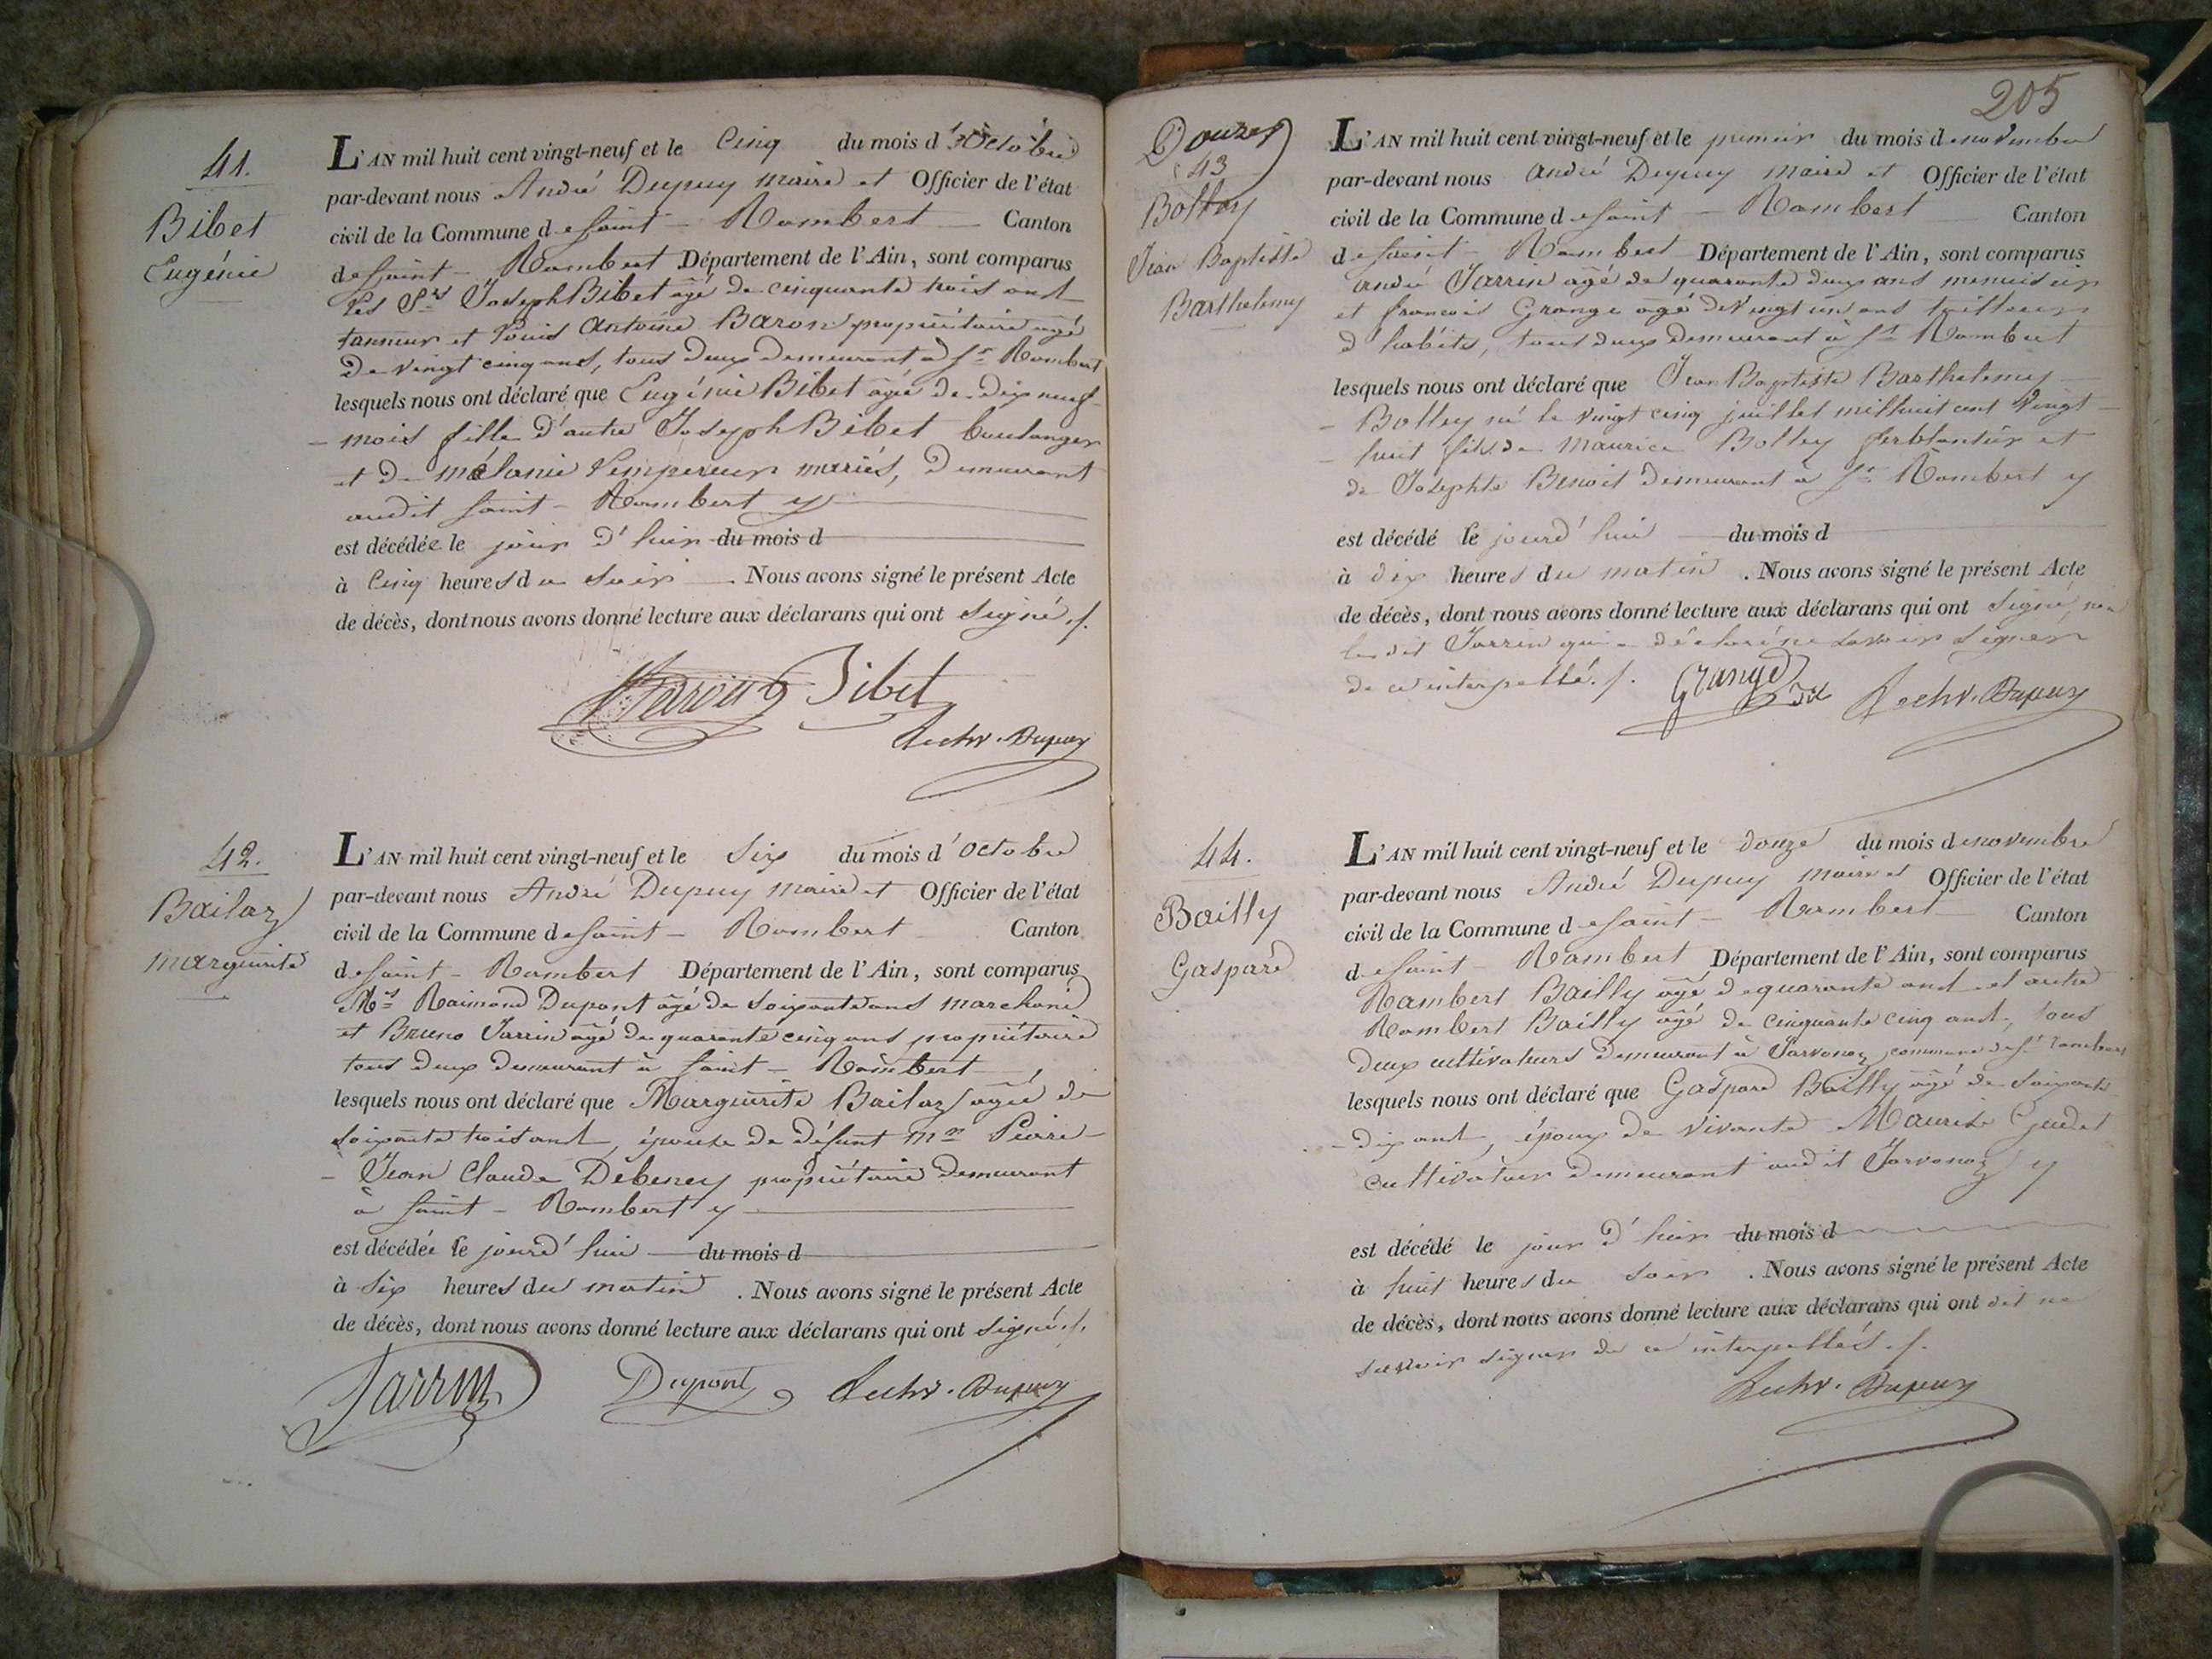 41.
Bibet
Eugénie
L'AN mil huit cent vingt-neuf et le Cinq du mois d'Octobre
par-devant nous André Dupuy maire et Officier de l'état
civil de la Commune de Saint-Rambert Canton
de Saint-Rambert Département de l'Ain, sont comparus
les Srs Joseph Bibet âgé de cinquante trois ans
tanneur et Louis Antoine Baron propriétaire âgé
de vingt cinq ans, tous deux demeurant à St Rambert
lesquels nous ont déclaré que Eugénie Bibet âgée de dix neuf
mois fille d'autre Joseph Bibet boulanger
et de mélanie Lempereur mariés, demeurant
audit Saint-Rambert y
est décédée le jour d'hui du mois d
à Cinq heures du soir. Nous avons signé le présent Acte
de décès, dont nous avons donné lecture aux déclarans qui ont signé ./.
Baron Bibet
Dupuy
42.
Bailaz
marguerite
L'AN mil huit cent vingt-neuf et le Six du mois d'octobre
par-devant nous André Dupuy maire et Officier de l'état
civil de la Commune de Saint-Rambert Canton
de Saint-Rambert Département de l'Ain, sont comparus
Mrs Raimond Dupont âgé de soixante ans marchand
et Bruno Jarrin âgé de quarante cinq ans propriétaire
tous deux demeurant à Saint-Rambert
lesquels nous ont déclaré que Marguerite Bailaz âgée de
soixante trois ans, épouse de défunt Mr Pierre
Jean Claude Debeney propriétaire demeurant
à Saint-Rambert y
est décédée le jourd'hui du mois d
à six heures du matin. Nous avons signé le présent Acte
de décès, dont nous avons donné lecture aux déclarans qui ont signé ./.
Jarrin Dupont Dupuy
205
Douze
43
Bolley
Jean Baptiste
Barthelemy
L'AN mil huit cent vingt-neuf et le premier du mois de novembre
par-devant nous André Dupuy maire et Officier de l'état
civil de la Commune de Saint-Rambert Canton
de Saint-Rambert Département de l'Ain, sont comparus
André Jarrin âgé de quarante deux ans menuisier
et francois Grange âgé de vingt un ans tailleur
d'habits, tous deux demeurant à St Rambert
lesquels nous ont déclaré que Jean Baptiste Barthelemy
Bolley né le vingt cinq juillet mil huit cent vingt
huit fils de Maurice Bolley ferblantier et
de Josephte Benoit demeurant à St Rambert y
est décédé le jourd'hui du mois d
à dix heures du matin. Nous avons signé le présent Acte
de décès, dont nous avons donné lecture aux déclarans qui ont signé, non
ledit Jarrin qui a déclaré ne savoir signer
de ce interpellé ./. Grange Dupuy
44.
Bailly
Gaspard
L'AN mil huit cent vingt-neuf et le douze du mois de novembre
par-devant nous André Dupuy maire et Officier de l'état
civil de la Commune de Saint-Rambert Canton
de Saint-Rambert Département de l'Ain, sont comparus
Rambert Bailly âgé de quarante ans et autre
Rambert Bailly âgé de cinquante cinq ans, tous
deux cultivateurs demeurant à Javornoz commune de St Rambert
lesquels nous ont déclaré que Gaspard Bailly âgé de soixante
dix ans, époux de vivante Maurise Gudet
cultivateur demeurant audit Javornoz y
est décédé le jour d'hui du mois d
à huit heures du soir. Nous avons signé le présent Acte
de décès, dont nous avons donné lecture aux déclarans qui ont dit ne
savoir signer de ce interpellés ./.
Dupuy